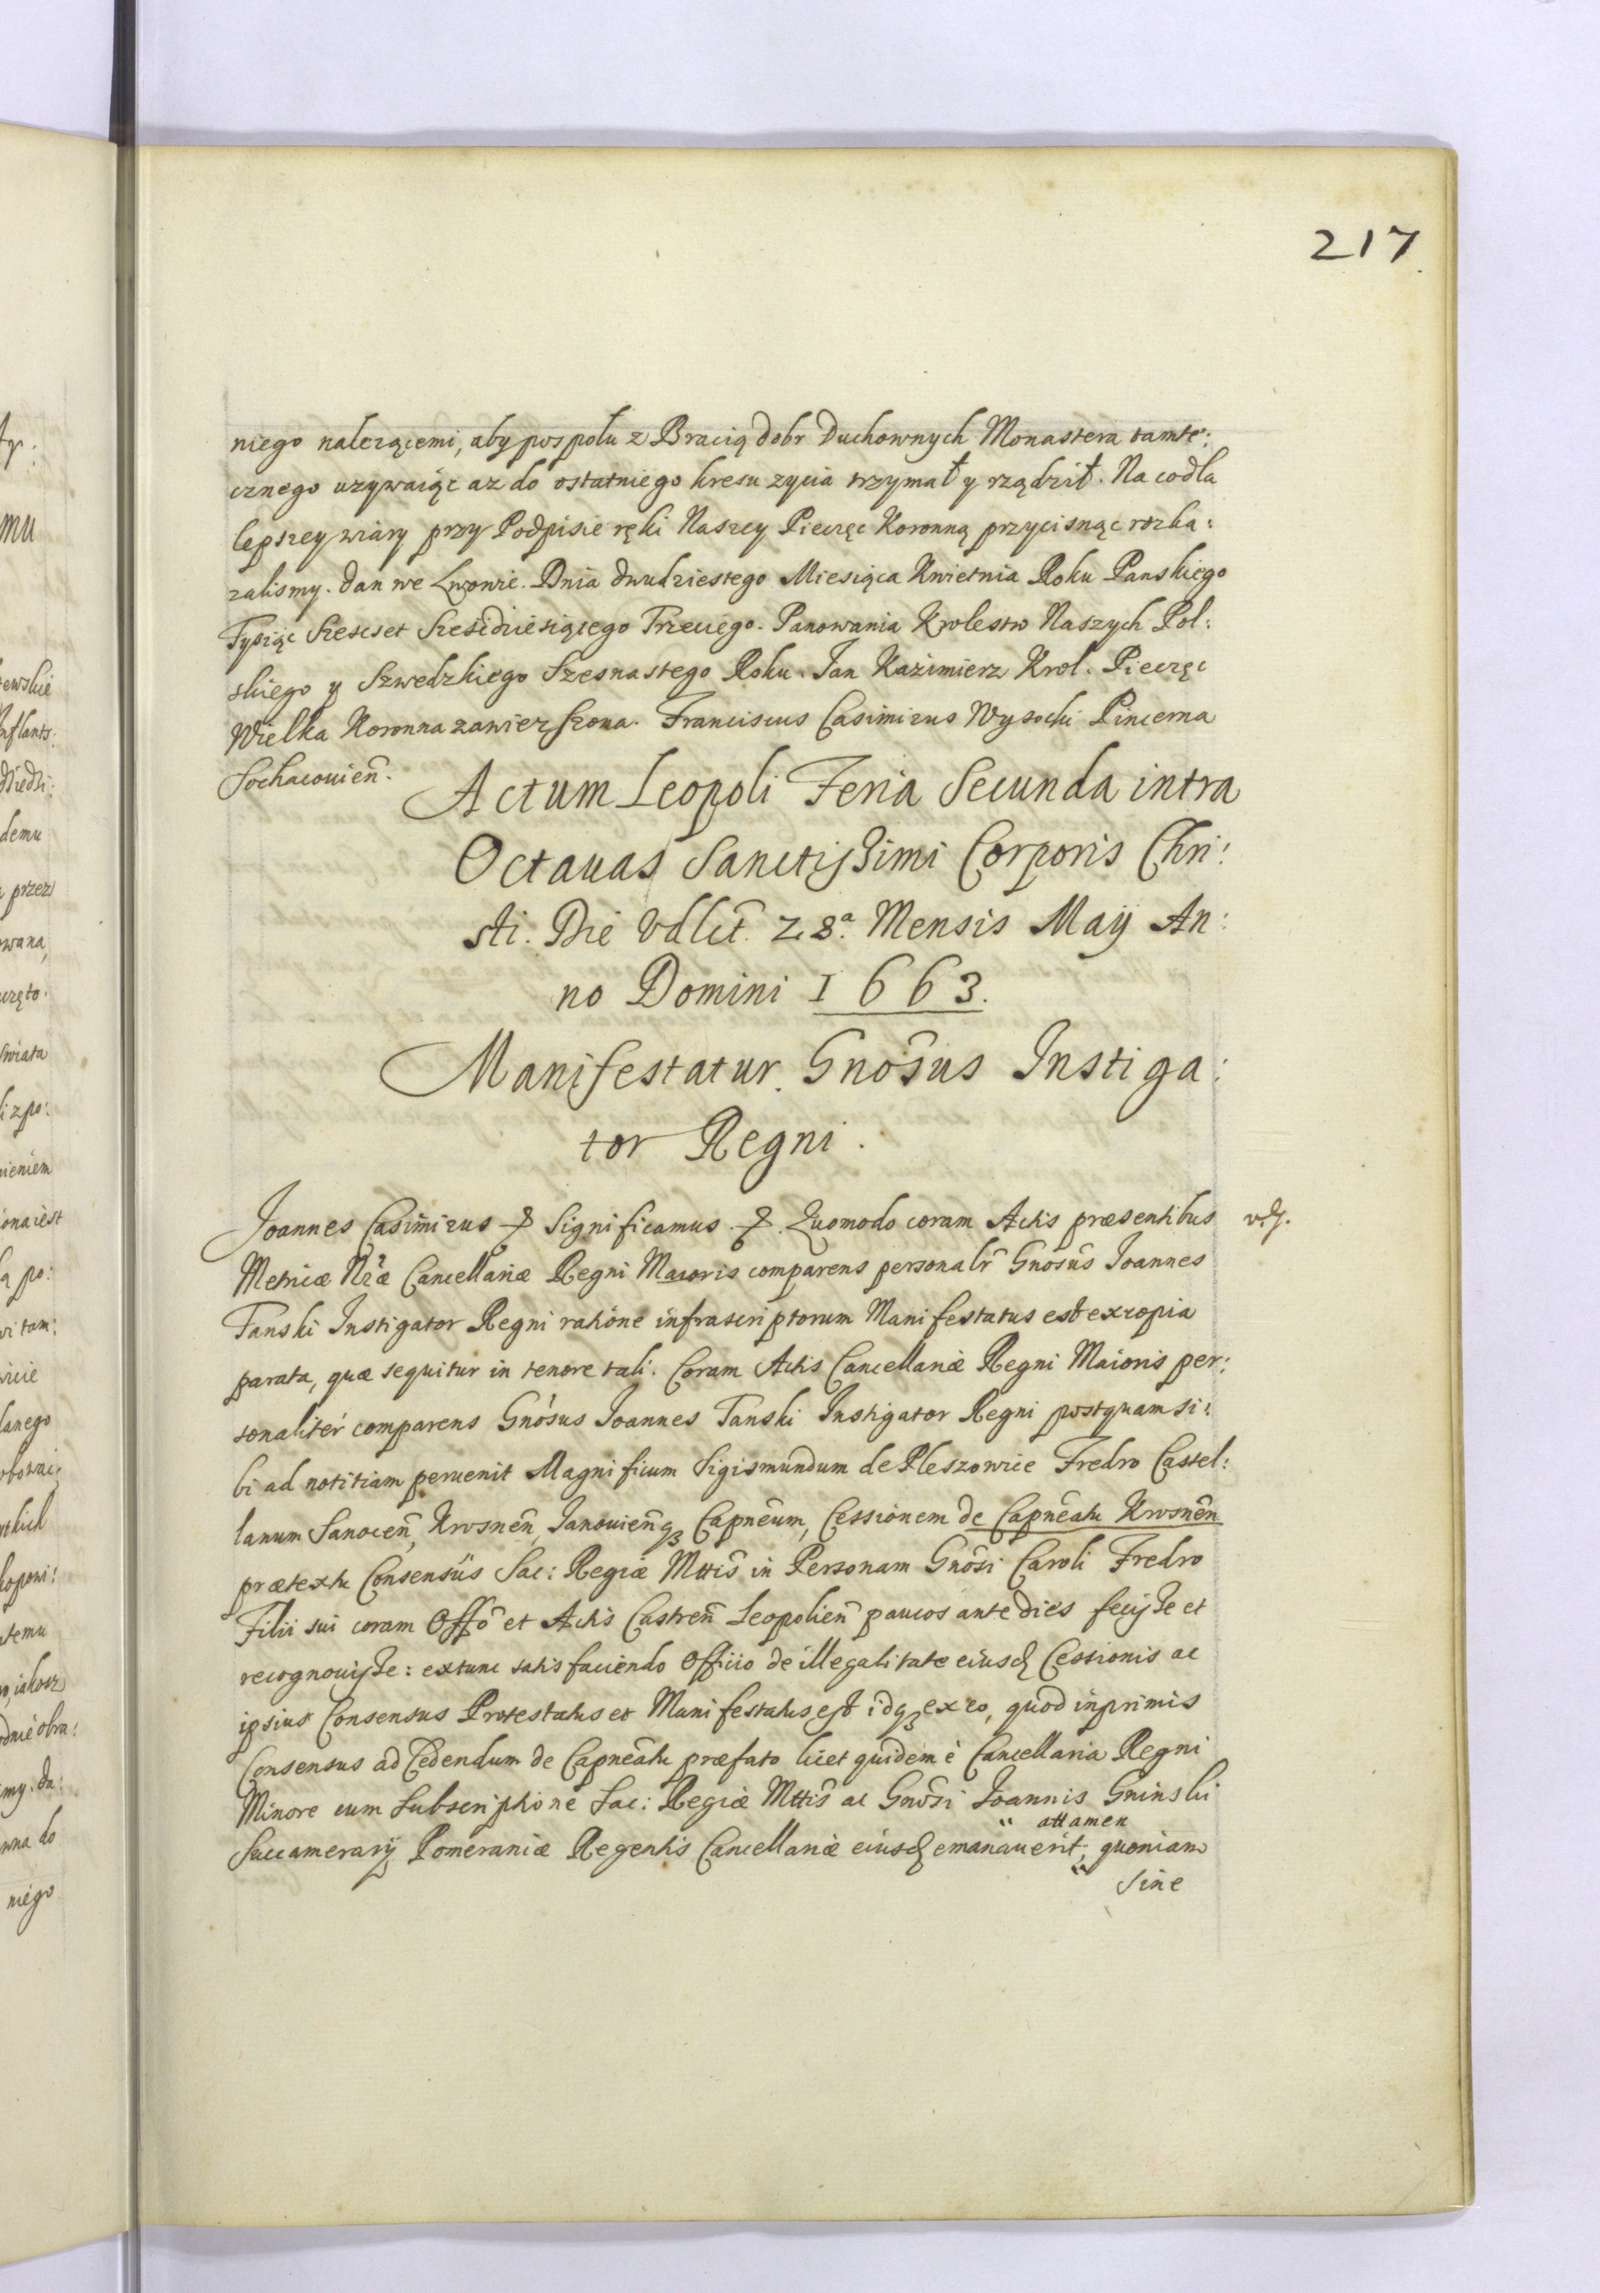 217
niego nalezącemi, aby pospołu z Bracią dobr Duchownych Monastera tamte:
cznego uzywaiąc az do ostatniego kresu zycia trzymał y rządził. Na co dla
lepszey wiary przy Podpisie ręki Naszey Pieczęc Koronną przycisnąc rozka:
zalismy. Dan we Lwowie. Dnia dwudziestego Miesiąca Kwietnia Roku Panskiego
Tysiąc Szescset Szescdziesiątego Trzeciego. Panowania Krolestw Naszych Pol:
skiego y Szwedzkiego Szesnastego Roku. Jan Kazimierz Krol. Pieczęc
Wielka Koronna zawierszona. Franciscus Casimirus Wysocki Pincerna
Sochacouien̄.
Actum Leopoli Feria Secunda intra
Octauas Sanctissimi Corporis Chri:
sti. Die Vdlct. 28.ª Mensis Maÿ An:
no Domini 1663.
Manifestatur Gnōsus Instiga:
tor Regni.
Joannes Casimirus & Significamus. &. Quomodo coram Actis præsentibus
Metricæ Nræ Cancellariæ Regni Maioris comparens personalr̄ Gnōsus Joannes
Tanski Instigator Regni ratione infrascriptorum Manifestatus est ex copia
parata, quæ sequitur in tenore tali. Coram Actis Cancellariæ Regni Maioris per:
sonaliter comparens Gnōsus Joannes Tanski Instigator Regni postquam si:
bi ad notitiam peruenit Magnificum Sigismundum de Pleszowice Fredro Castel:
lanum Sanocen̄, Krosnēn, Janouien̄qȝ Capnēum, Cessionem de Capnēatu Krosnēn
prætextu Consensûs Sac: Regiæ Mttis̄ in Personam Gnōsi Caroli Fredro
Filii sui coram Offō et Actis Castren̄ Leopolien̄ paucos ante dies fecisse et
recognouisse: extunc satisfaciendo Officio de illegalitate eiusd̄ Cessionis ac
ipsius Consensus Protestatus et Manifestatus est idqȝ ex eo, quod inprimis
Consensus ad Cedendum de Capnēatu præfato licet quidem è Cancellaria Regni
Minore cum Subscriptione Sac: Regiæ Mttis̄ ac Gnōsi Joannis Gninski
attamen
Succamerarÿ Pomeraniæ Regentis Cancellariæ eiusd̄ emanauerit, quoniam
sine